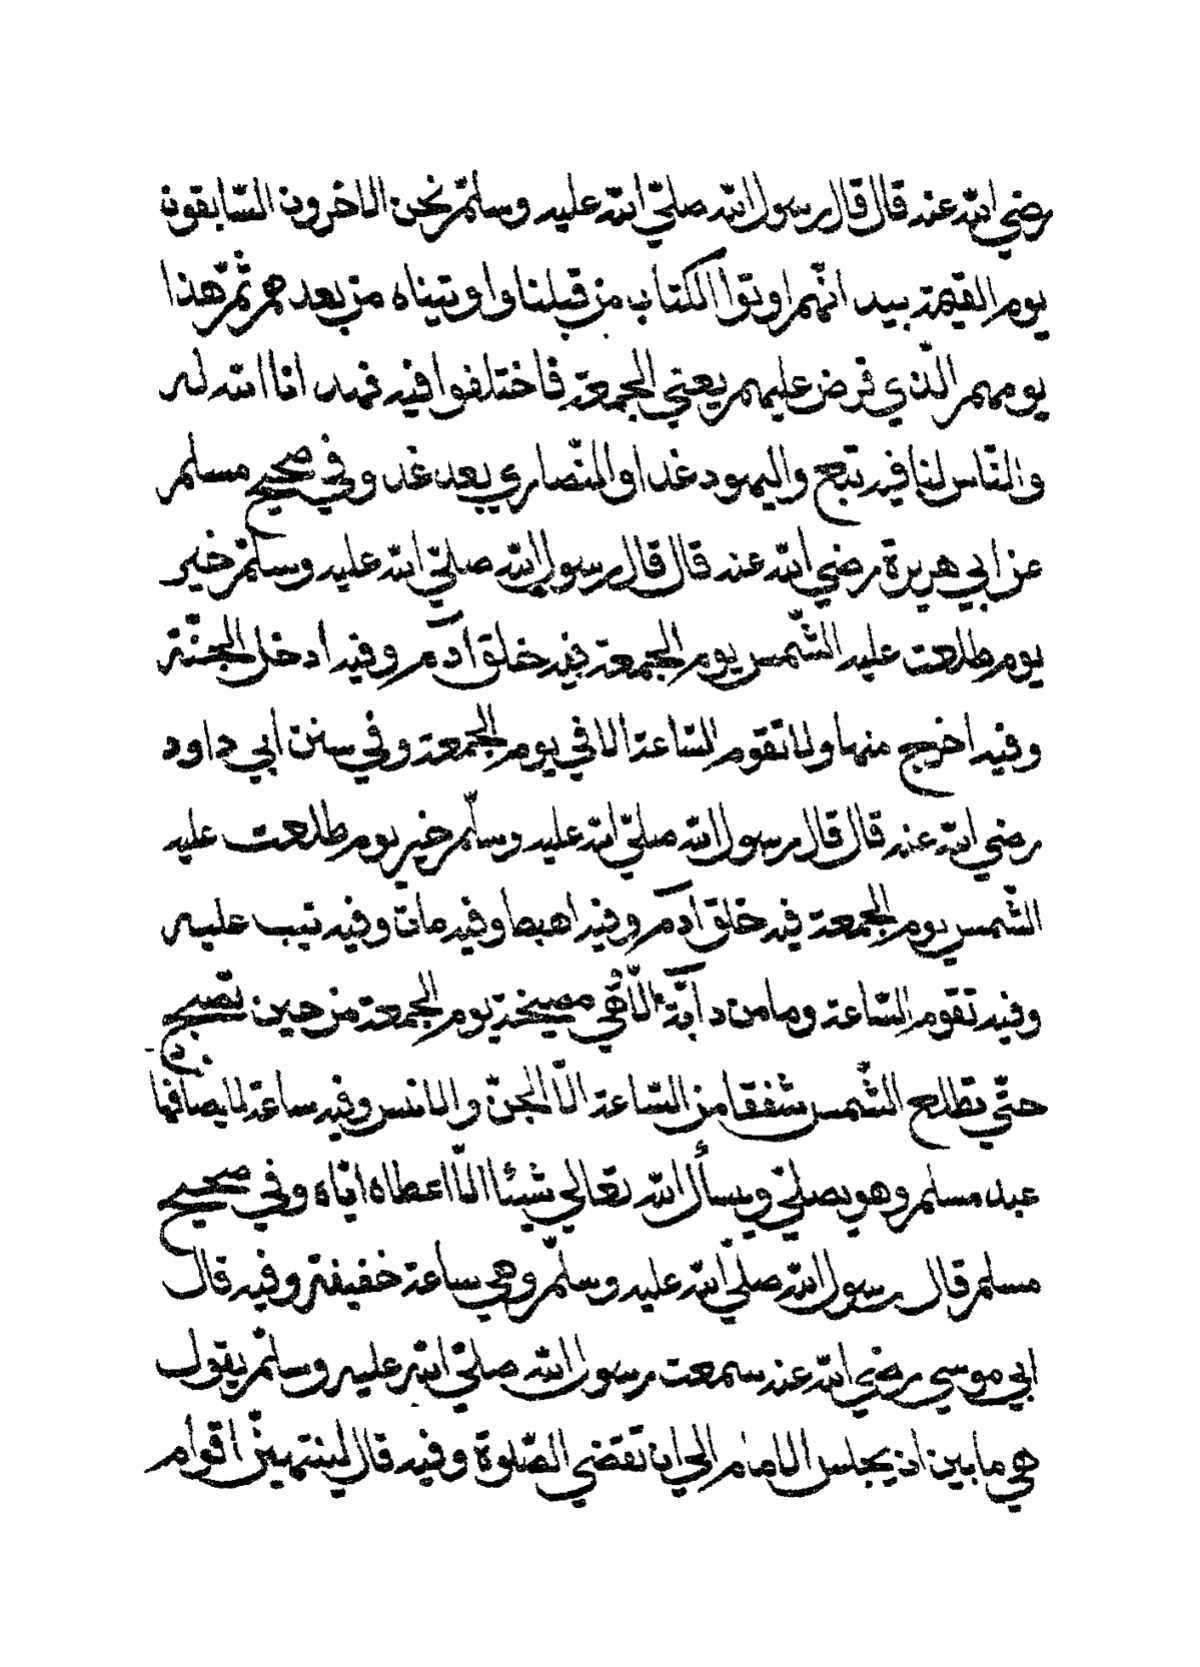 رضي الله عنه قال قال رسول الله صلّي الله عليه وسلّم نحن الاخرون السّابقون
يوم القيمة بيد انّهم اوتوا الكتاب من قبلنا واوتيناه من بعدهم ثمّ هذا
يومهم الّذي فرض عليهم يعني الجمعة فاختلفوا فيه فهدانا الله له
والنّاس لنا فيه تبع واليهود غدا والنّصاري بعد غد وفي صحيح مسلم
عن ابي هريرة رضي الله عنه قال قال رسول الله صلّي الله عليه وسلّم خير
يوم طلعت عليه الشّمس يوم الجمعة فيه خلق آدم وفيه ادخل الجنّة
وفيه اخرج منها ولا تقوم السّاعة الا في يوم الجمعة وفي سنن ابي داود
رضي الله عنه قال قال رسول الله صلّي الله عليه وسلّم خير يوم طلعت عليه
الشّمس يوم الجمعة فيه خلق آدم وفيه اهبط وفيه مات وفيه تيب عليه
وفيه تقوم السّاعة وما من دآبّة الّا هي مصيخة يوم الجمعة من حين تصبح
حتّي تطلع الشّمس شفقا من السّاعة الّا الجنّ والانس وفيه ساعة لا يصادفها
عبد مسلم وهو يصلّي ويسأل الله تعالي شيئا الّا اعطاه ايّاه وفي صحيح
مسلم قال رسول الله صلّي الله عليه وسلّم وهي ساعة خفيفة وفيه قال
ابي موسي رضي الله عنه سمعت رسول الله صلّي الله عليه وسلّم يقول
هي ما بين اذ يجلس الامام الي ان تقضي الصّلوة وفيه قال لينتهينّ اقوام